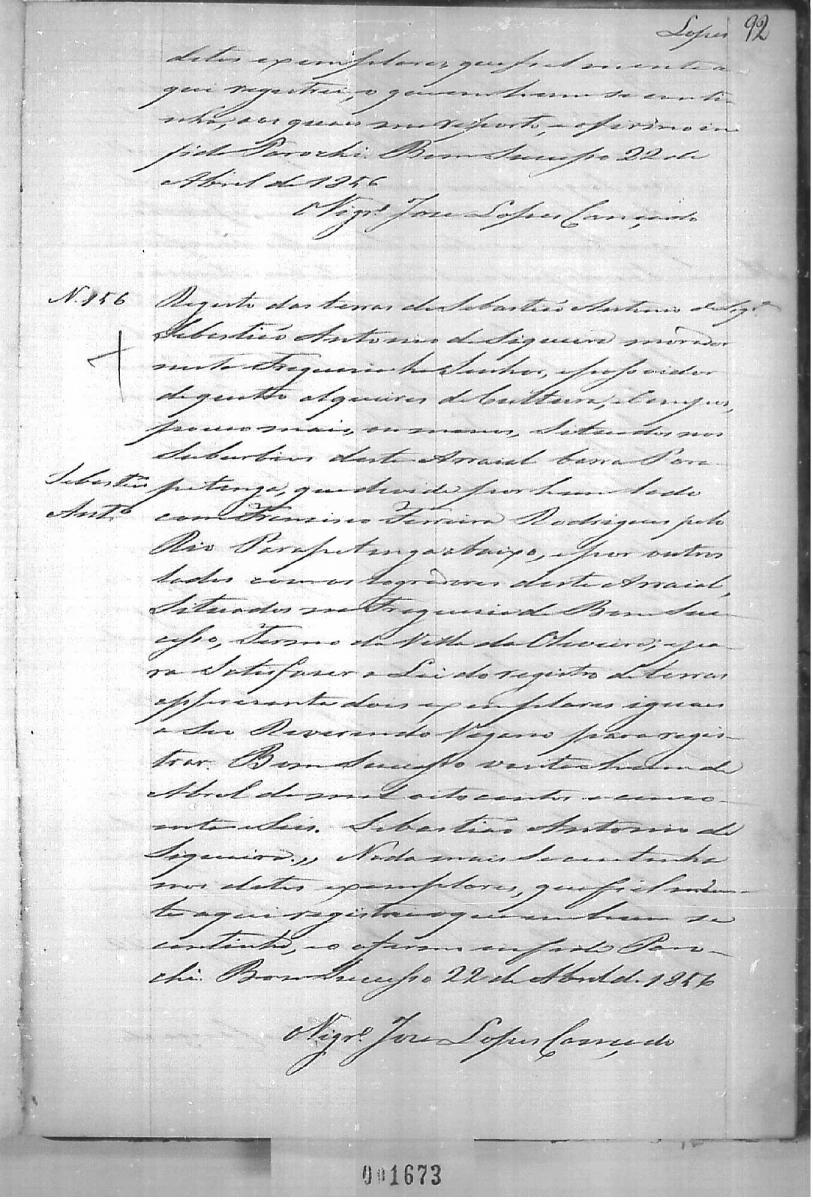 Lopes 92
detos exemplares, que fielmente a
qui registrei, o que em hum se conti
nha, aos quais me reporto, e afirmo in
fide Parochi. Bom Sucesso 22 de
Abril de 1856
O Vigr.º Jose Lopes Cançado
N. 156 Registo das terras de Sebastião Antonio de Siqr.ª
Sebastião Antonio de Siqueira morador
nesta Freguesia he Senhor, e possuidor
de quatro alqueires de Cultura, e Campos,
pouco mais, ou menos, Situados nos
Suburbios deste Arraial barra Para
Sebastião
petinga, que devide por hum lado
Antº
com Francisco Ferreira Rodrigues pelo
Rio Parapetinga abaixo, e por outros
lados com os logradores deste Arraial,
Situados na Freguesia de Bom Suc
cesso, Termo da Villa da Oliveira; e pa
ra Satisfazer a Lei do registro de terras
appresenta dois exemplares iguaes
a Seu Reverendo Vigario para regis-
trar. Bom Sucesso vinte hum de
Abril de mil oito centos e cinco
enta e Seis. Sebastião Antonio de
Siqueira.,, Nada mais Se continha
nos detos exemplares, que fielmen-
te aqui registrei o que em hum se
continha, e o afirmo in fide Paro-
chi. Bom Sucesso 22 de Abril de 1856
O Vigr.º Jose Lopes Cançado
001673